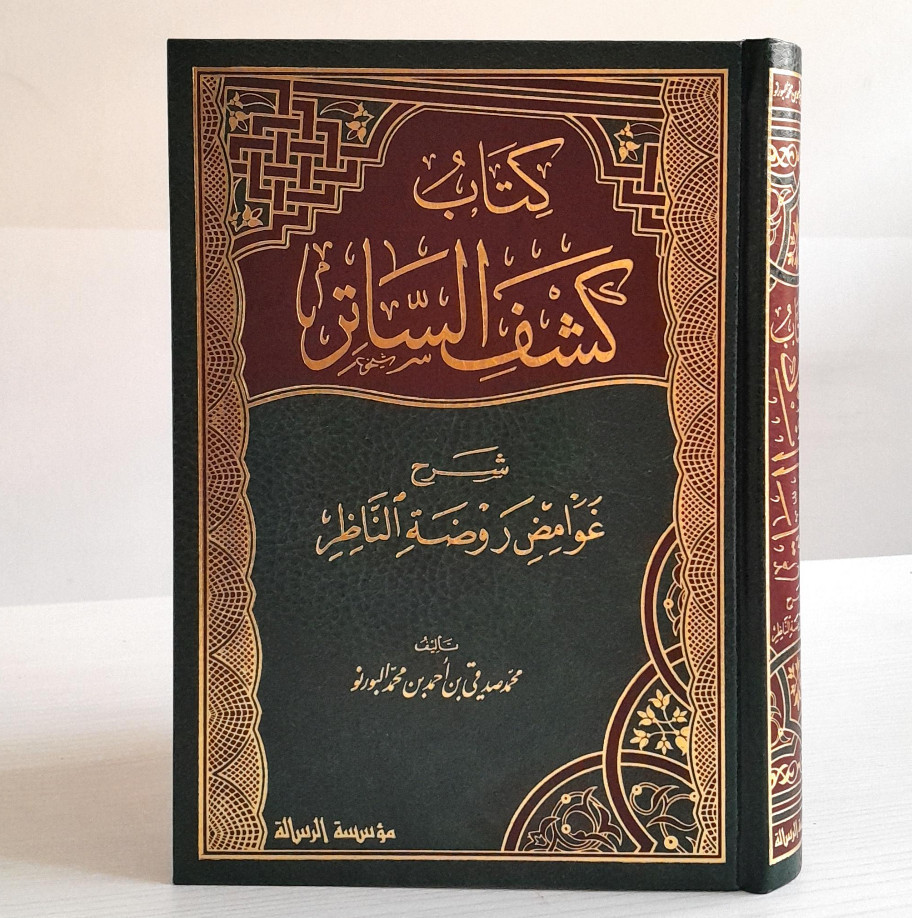 كِتَابُ
كَشْفِ السَّاتِرِ
شَرْح
غَوَامِضِ رَوْضَةِ النَّاظِرِ
تَأليفُ
محمّد صدقي بن أحمد بن محمّد البورنو
مؤسسة الرسالة